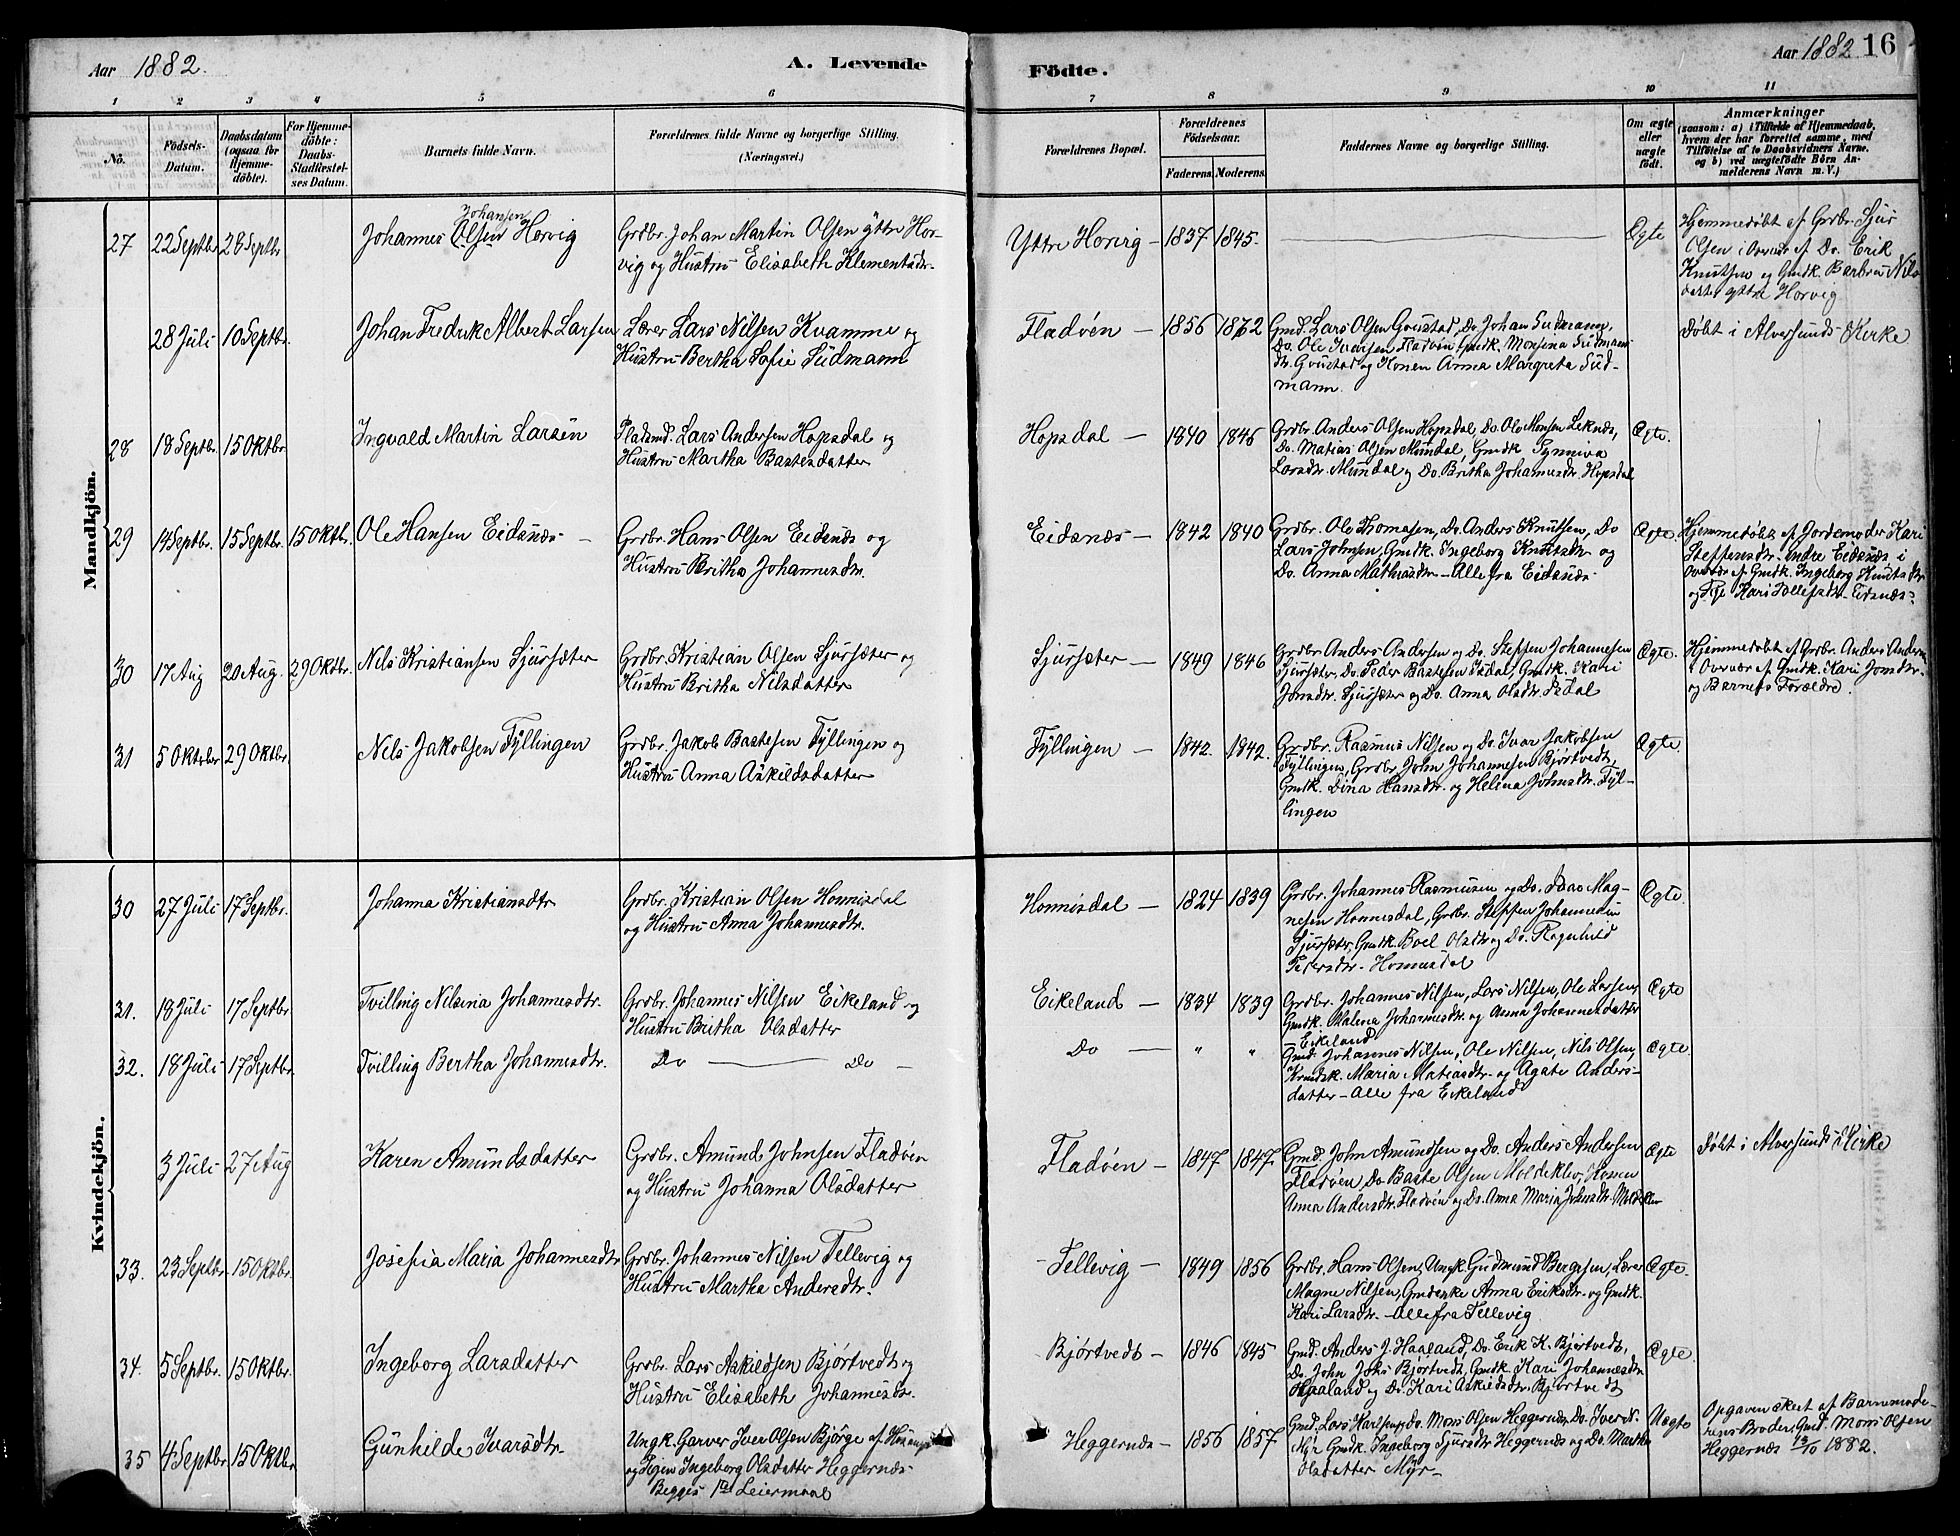 Aar 1882.
A. Levende
Födte.
Aar 1882
16
1 2 3 4 5 6 7 8 9 10 11
No.
Födsels-
Datum.
Daabsdatum
(ogsaa for
Hjemme-
döbte).
For Hjemme-
döbte:
Daabs-
Stadfæstel-
ses Datum.
Barnets fulde Navn.
Forældrenes fulde Navne og borgerlige Stilling.
(Næringsvei.)
Forældrenes Bopæl.
Forældrenes
Födselsaar.
Faderens. Moderens.
Faddernes Navne og borgerlige Stilling.
Om ægte
eller
uægte
födt.
Anmærkninger
(saasom: a) i Tilfælde af Hjemmedaab,
hvem der har forrettet samme, med
Tilföielse af to Daabsvidners Navne,
og b) ved uægtefödte Börn An-
melderens Navn m. V.)
Mandkjön.
27 22 Septbr 28 Septbr
Johansen
Johannes Olsen Horvig
Grdbr. Johan Martin Olsen yttre Hor-
vig og Hustru Elisabeth Klementsdr.
Yttre Horvig – 1837 1845.
Ægte
Hjemmedøbt af Grdbr. Sjur
Olsen i Overvær af Do. Erik
Knutsen og Gmdk. Barbru Nils
datter yttre Horvig
28 Juli 10 Septbr.
Johan Fredrik Albert Larsen
Lærer Lars Nilsen Kvamme og
Hustru Bertha Sofie Sudmann
Fladvøn – 1856 1862
Gmd. Lars Olsen Do. Johan Sudmann,
Do. Ole Iversen Fladvøn, Gmdk. Monsina Sudmann
og Konen Anna Margreta Sud-
mann.
Døbt i Alversunds Kirke
28 18 Septbr. 15 Oktbr.
Ingvald Martin Larsen
Pladsmd. Lars Andersen Hopsdal og
Hustru Martha Bastesdatter
Hopsdal – 1840 1846
Grdbr. Anders Olsen Hopsdal, Do. Ole Monsen Leknæs,
Do. Matias Olsen Mundal, Gmdk. Synniva
Larsdtr. Mundal og Do. Britha Johannesdr. Hopsdal
Ægte.
29 14 Septbr. 15 Septbr. 15 Oktbr.
Ole Hansen Eidsnæs –
Grdbr. Hans Olsen Eidsnæs og
Hustru Britha Johannesdtr.
Eidsnæs – 1842 1840
Grdbr. Ole Thomasen, Do. Anders Knutsen, Do
Lars Johnsen, Gmdk. Ingeborg Knutsdtr og
Do. Anna Mathiasdtr – Alle fra Eidsnæs
Ægte.
Hjemmedøbt af Jordemoder Kari
Steffensdr. indre Eidsnæs i
Overvær af Gmdk. Ingeborg Knuts dr
og Pige Kari Tollefsdtr – Eidsnæs
30 17 Aug 20 Aug. 29 Oktbr.
Nils Kristiansen Sjursæter
Grdbr. Kristian Olsen Sjursæter og
Hustru Britha Nilsdatter
Sjursæter – 1849 1846
Grdbr. Anders Andersen og Do. Steffen Johannesen
Sjursæter, Do. Peder Bastesen Isdal, Gmdk. Kari
Jonsdtr. Sjursæter og Do. Anna Olsdtr. Isdal
Ægte.
Hjemmedøbt af Grdbr. Anders Andersen
i Overvær af Gmdk. Kari Jonsdtr.
og Barnets Forældre.
31 5 Oktober 29 Oktbr
Nils Jakobsen Fyllingen
Grdbr. Jakob Bastesen Fyllingen og
Hustru Anna Askildsdatter
Fyllingen – 1842. 1842.
Grdbr. Rasmus Nilsen og Do. Ivar Jakobsen
Fyllingen, Grdbr. John Johannesen Bjørtvedt,
Gmdk. Dina Hansdtr. og Helena Johnsdtr. Fyl-
lingen
Ægte.
Kvindekjön.
30 27 Juli 17 Septbr.
Johanna Kristiansdtr
Grdbr. Kristian Olsen Honnisdal
og Hustru Anna Johannesdtr.
Honnisdal – 1824 1839
Grdbr. Johannes Rasmusen og Do. Mag-
nesen Honnisdal, Grdbr. Steffen Johannesen
Sjursæter, Gmdk. Boel Olsdtr og Do. Ragnhild
Pedersdtr. Honnisdal
Ægte.
31. 18 Juli 17 Septbr
Tvilling Nilsina Johannesdtr.
Grdbr. Johannes Nilsen Eikeland og
Hustru Britha Olsdatter
Eikeland – 1834 1839
Grdbr. Johannes Nilsen, Lars Nilsen, Ole Larsen,
Gmdk. Malena Johannesdtr og Anna Johannesdatter
– Eikeland
Ægte
32. 18 Juli 17 Septbr.
Tvilling Bertha Johannesdtr.
Do – Do –
Do – " "
Gmd. Johannes Nilsen, Ole Nilsen, Nils Olsen,
Maria Matiasdtr. og Agate Anders-
datter – Alle fra Eikeland
Ægte.
3 Juli 27 Aug
Karen Amundsdatter
Grdbr. Amund Johnsen Fladvøn
og Hustru Johanna Olsdatter
Fladvøn – 1847 1847
Gmd. John Amundsen og Do. Anders Andersen
Fladvøn, Do Baste Olsen Moldeklev, Konen
Anna Andersdtr. Fladvøn og Do. Anna Maria Johnsdtr.
Ægte
Døbt i Alversunds Kirke
33. 23 Septbr. 15 Oktbr.
Josefia Maria Johannesdtr
Grdbr. Johannes Nilsen Tellevig og
Hustru Martha Andersdtr.
Tellevig – 1849 1856
Grdbr. Hans Olsen, Ungk. Gudmund Bergesen, Lærer
Magne Nilsen, Gmdenke Anna Eriksdtr. og Gmdk.
Kari Larsdtr. – Alle fra Tellevig
Ægte.
34. 5 Septbr. 15 Oktbr.
Ingeborg Larsdatter
Grdbr. Lars Askildsen Bjørtvedt og
Hustru Elisabeth Johannesdr.
Bjørtvedt – 1846 1845
Gmd. Anders J. Haaland, Do. Erik K. Bjørtvedt,
Do. John Johs Bjørtvedt, Gmdk. Kari Johannesdtr
Haaland og Do. Kari Askildsdtr. Bjørtvedt
Ægte.
35 4 Septbr 15 Oktbr
Gunhilde Ivarsdtr.
Ungk. Garver Iver Olsen Bjørge af
og Pigen Ingeborg Olsdatter Heggernæs
Begges 1ste Leiermaal
Heggernæs – 1856 1857
Gmd. Lars Karlsen, Do. Mons Olsen Heggernæs, Do. Iver
Myr Gmdk. Ingeborg Sjursdtr Heggernæs og Do. Martha
Olsdatter Myr –
Uægte
Opgaven sket af Barnemode-
rens Broder Gmd. Mons Olsen
Heggernæs 13/10 1882.